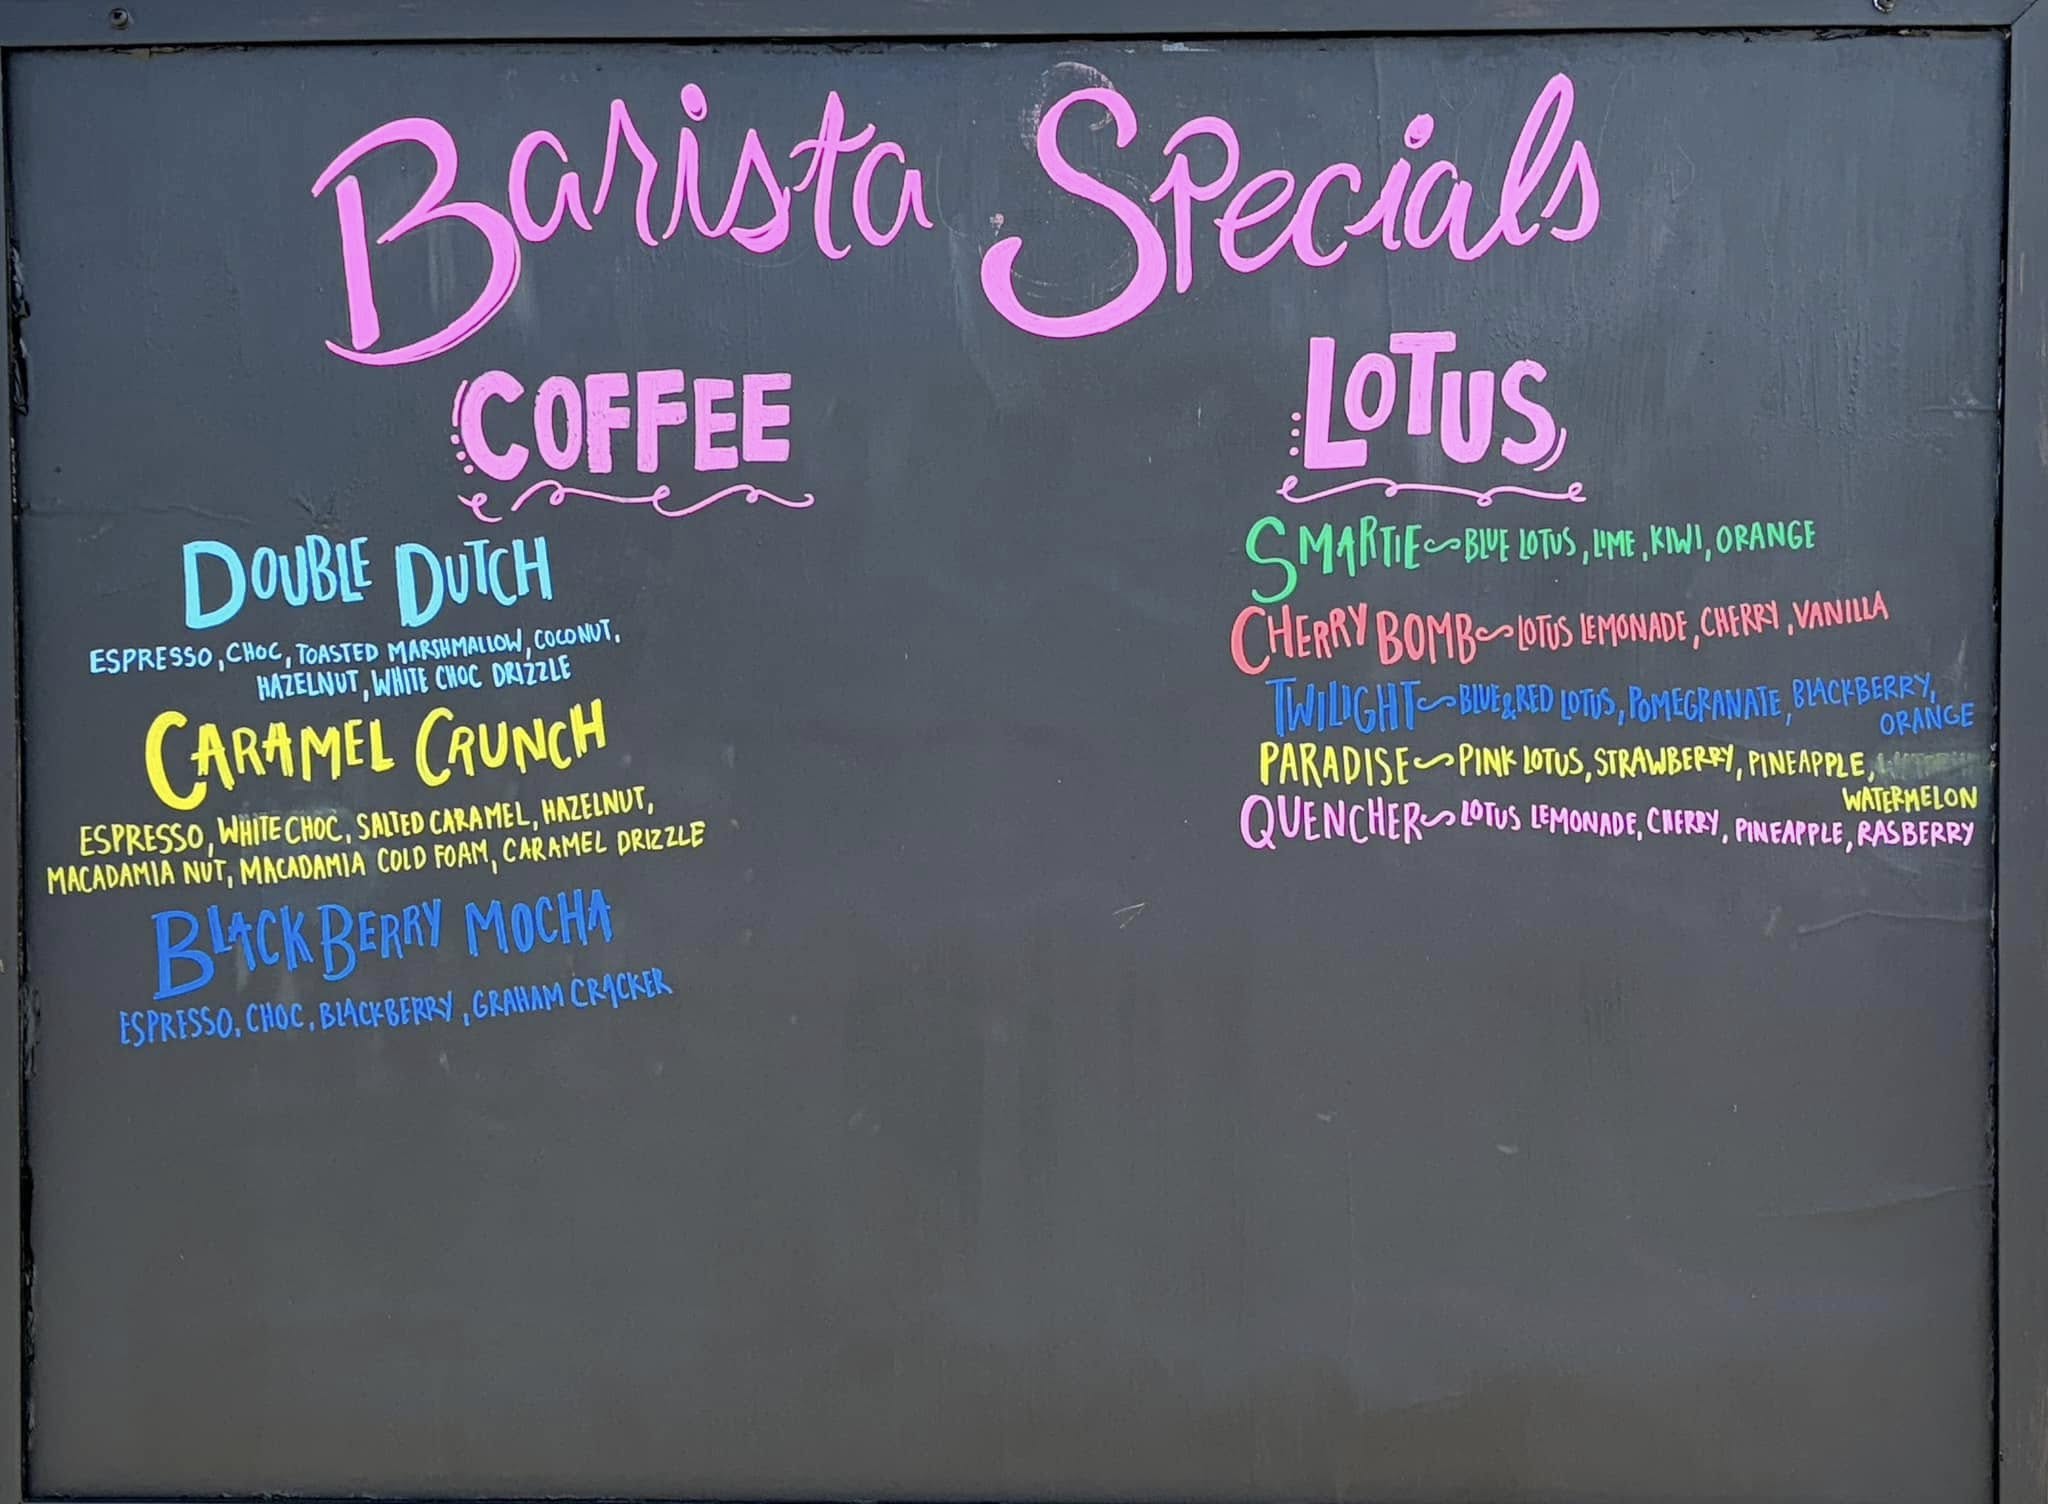 Barista Specials
COFFEE
DOUBLE DUTCH
ESPRESSO, CHOC, TOASTED MARSHMALLOW, COCONUT,
HAZELNUT, WHITE CHOC DRIZZLE
CARAMEL CRUNCH
ESPRESSO, WHITE CHOC, SALTED CARAMEL, HAZELNUT,
MACADAMIA NUT, MACADAMIA COLD FOAM, CARAMEL DRIZZLE
BLACKBERRY MOCHA
ESPRESSO, CHOC, BLACKBERRY, GRAHAM CRACKER
LOTUS
SMARTIE~BLUE LOTUS, LIME, KIWI, ORANGE
CHERRY BOMB~LOTUS LEMONADE, CHERRY, VANILLA
TWILIGHT~BLUE&RED LOTUS, POMEGRANATE, BLACKBERRY,
ORANGE
PARADISE~PINK LOTUS, STRAWBERRY, PINEAPPLE,
WATERMELON
QUENCHER~LOTUS LEMONADE, CHERRY, PINEAPPLE, RASBERRY